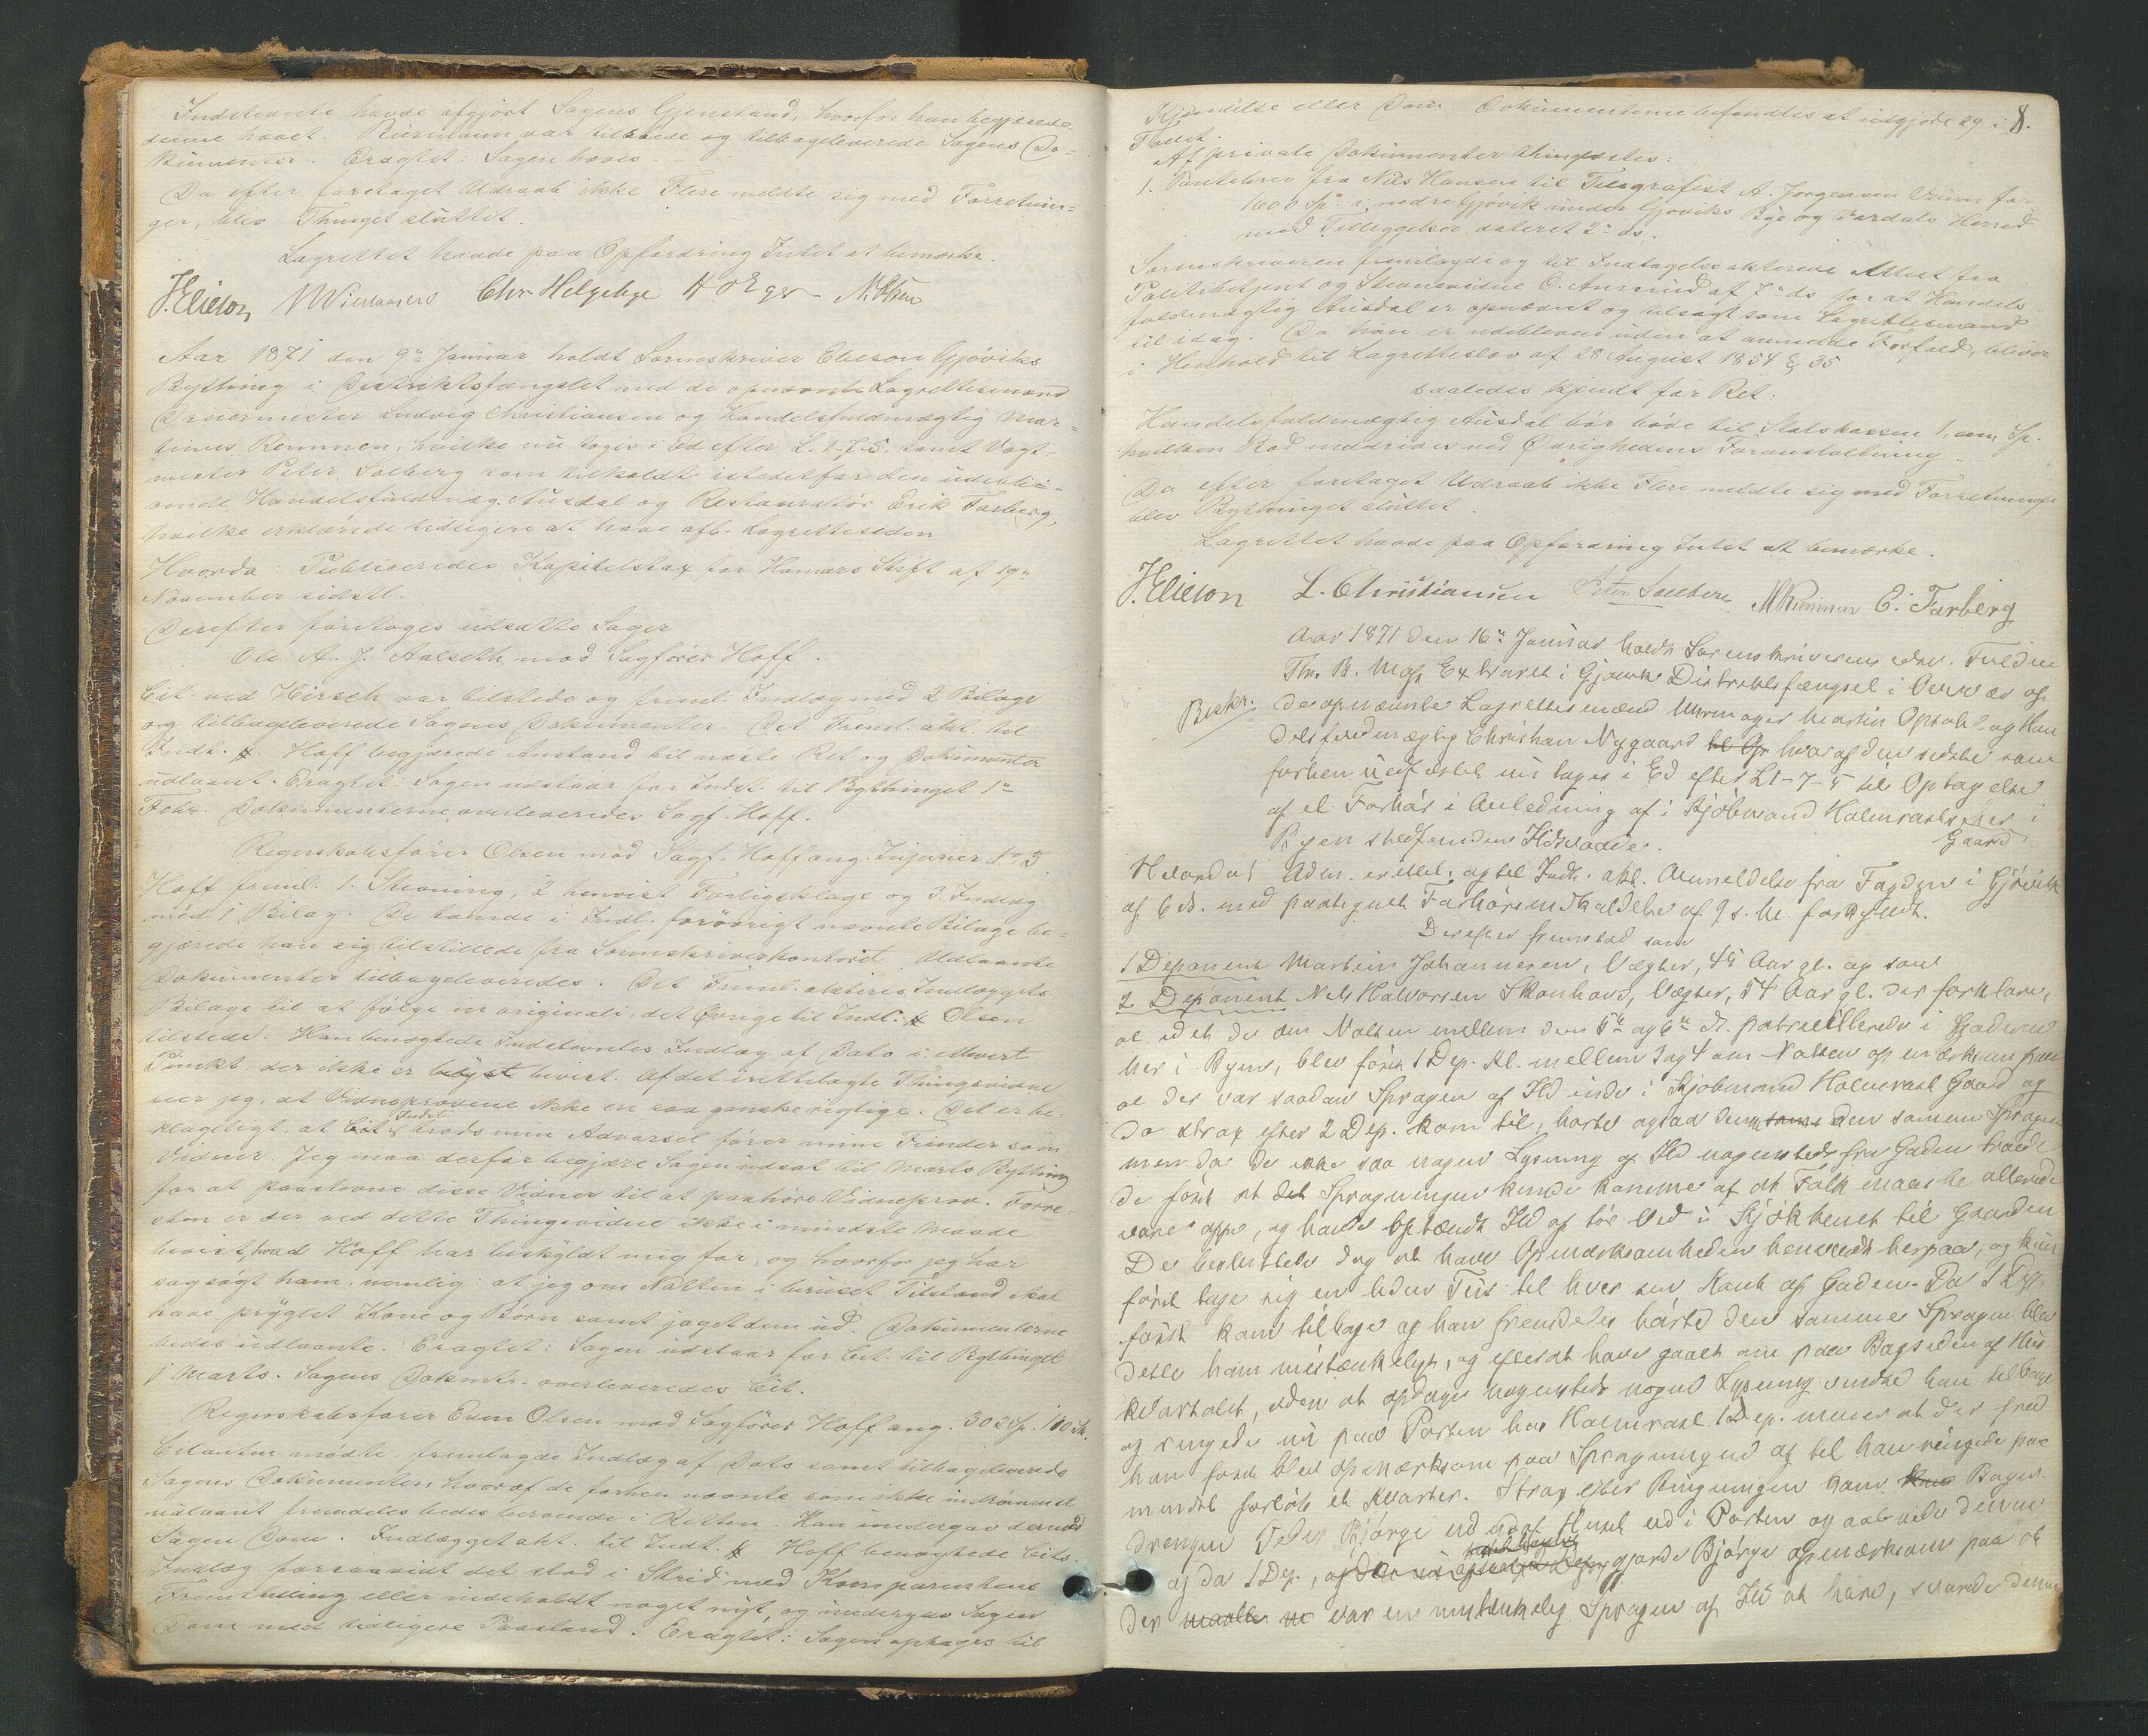 Indstevnte havde afgjort Sagens Gjenstand, hvorfor han begjærede
denne hævet. Riermann var tilstede og tilbageleverede Sagens Do-
kumenter. Eragtet: Sagen hæves.
Da efter foretaget Udraab ikke Flere meldte sig med Forretnin-
ger, blev Thinget sluttet.
Lagrettet havde paa Opfordring Intet at bemærke.
J. Elieson Chr Helgebye
Aar 1871 den 9de Januar holdt Sorenskriver Elieson Gjøviks
Bything i Distriktsfængslet med de opnævnte Lagrettesmænd
Dreiermester Ludvig Christiansen og Handelsfuldmægtig Mar-
tinus Remmen, hvilke nu toges i Ed efter L. 1-7-5, samt Vagt-
mester Peter Solberg som tilkaldt istedetfor den udebli-
vende Handelsfuldmæg. Ausdal og Restauratør Erik Farberg,
hvilke erklærede tidligere at have afl. Lagretteseden
Hvorda: Publiceredes Kapitelstax for Hamars Stift af 19de
November sidstl.
Derefter foretoges udsatte Sager
Ole A. J. Aalseth mod Sagfører Hoff.
Cit. ved Hirsch var tilstede og freml. Indlæg med 2 Bilage
og tilbageleverede Sagens Dokumenter. Det Freml. akt. til
Indt. Hoff begjærede Anstand til næste Ret og Dokumenter
udlaant. Eragtet: Sagen udstaar for Indst. til Bythinget 1ste
Febr. Dokumenterne overleveredes Sagf. Hoff.
Regnskabsfører Olsen mod Sagf. Hoff ang. Injurier No 3
Hoff freml. 1. Stevning, 2 henvist Forligsklage og 3. Indlæg
med 1 Bilag. De tvende i Indl. forøvrigt nævnte Bilage be-
gjærede han sig tilstillede fra Sorenskriverkontoret. Udlaante
Dokumenter tilbageleveredes. Det Freml. akteres Indlæggets
Bilage til at følge in originali, det Øvrige til Indt. Olsen
tilstede. Han benægtede Indstevntes Indlæg af Dato i ethvert
Punkt der ikke er bevist. Af det irettelagte Thingsvidne
ser jeg, at Vidneprovene ikke er saa ganske rigtige. Det er be-
klageligt, at Indst. trods min Advarsel fører mine Fiender som
Vidner. Jeg maa derfor begjære Sagen udsat til Marts Bything
for at paastevne disse Vidner til at paahøre Vidneprov. Forre-
sten er der ved dette Thingsvidne ikke i mindste Maade
bevist, hvad Hoff har beskyldt mig for, og hvorfor jeg har
sagsøgt ham, nemlig: at jeg om Natten i beruset Tilstand skal
have pryglet Kone og Børn samt jaget dem ud. Dokumenterne
bedes udlaante. Eragtet: Sagen udstaar for Cit. til Bythinget
i Marts. Sagens Dokmtr. overleveredes Cit.
Regnskabsfører Even Olsen mod Sagfører Hoff ang. 302 Sp. 100 Sk.
Citanten mødte, fremlagde Indlæg af Dato samt tilbageleverede
Sagens Dokumenter, hvoraf de forhen nævnte som ikke indrømmet
udlaant fremdeles bedes beroende i Retten. Han undergav dermed
Sagen Dom. Indlægget akt. til Indt. Hoff benægtede Cits.
Indlæg forsaavidt det stod i Strid med Komparentens
Fremstilling eller indeholdt noget nyt, og undergav Sagen
Dom med tidligere Paastand. Eragtet: Sagen optages til
8.
Kjendelse eller Dom. Dokumenterne befandtes at udgjøre 29 i
Tallet.
Af private Dokumenter thinglæstes:
1. Pantebrev fra Nils Hansen til Telegrafist A. Jørgensen for
1600 Sp. i nedre Gjøvik under Gjøviks Bye og Vardals Herred
med Tillæggelse dateret 2de ds.
Sorenskriveren fremlagde og til Indtagelse akterede Attest fra
Politibetjent og Stevnevidne O. Amrud af 7de ds for at Handels-
fuldmægtig Ausdal er opnævnt og tilsagt som Lagrettesmand
til idag. Da han er udebleven uden at anmelde Forfald, bliver
i Henhold til Lagretteslov af 28 August 1854 § 35
saaledes kjendt for Ret:
Handelsfuldmægtig Ausdal bør bøde til Statskassen 1, en, Sp.
hvilken Bod inddrives ved Øvrighedens Foranstaltning.
Da efter foretaget Udraab ikke Flere meldte sig med Forretninger
blev Bythinget sluttet.
Lagrettet havde paa Opfordring Intet at bemærke.
J. Elieson L. Christiansen Peter Soelberg M Remmen E. Farberg
Aar 1871 den 16de Januar holdt Sorenskriverens edsv. Fuldm
Th. B. Moss Extraret i Gjøvik Distriktsfængsel i Overvær af
Beskr. de opnævnte Lagrettesmænd Uhrmager Martin Opdahl og Han
delsfuldmægtig Christian Nygaard hvoraf den sidste som
forhen uedfæstet nu toges i Ed efter L 1-7-5 til Optagelse
af et Forhør i Anledning af i Kjøbmand Halmrasts her i
Byen stedfundne Ildsvaade. Gaard
Hvorda: Adm. erittel. og til Indt. akt. Anmeldelse fra Fogden i Gjøvik
af 6 ds. med paategnet Forhørsindkaldelse af 9 s. M. forkyndt.
Derefter fremstod som
1 Deponent Martin Johannesen, Vægter, 45 Aar gl. og som
2 Deponent Nels Halvorsen Skonhovd, Vægter, 54 Aar gl. der forklare,
at idet de om Natten mellem den 5te og 6te ds. patrouillerede i Gaderne
her i Byen, blev først 1 Dep. Kl. mellem 3 og 4 om Natten opmærksom paa
at der var saadan Spragen af Ild inde i Kjøbmand Halmrast Gaard og
da strax efter 2 Dep. kom til, hørte ogsaa denne den samme Spragen
men da de ikke saa nogen Lysning af Ild nogensteds fra Gaden troede
de først at det Spragningen kunde komme af at Folk maaske allerede
vare oppe, og havde optændt Ild af tør Ved i Kjøkkenet til Gaarden
De besluttede dog at have Opmærksomheden henvendt herpaa, og kun
først tage sig en liden Tur til hver sin Kant af Gaden. Da 1 Dep.
først kom tilbage og han fremdeles hørte den samme Spragen blev
dette ham mistænkeligt, og efterat have gaaet om paa Bagsiden af Hus
kvartalet, uden at opdage nogensteds nogen Lysning vendte han tilbage
og ringede nu paa Porten hos Halmrast. 1 Dep. mener at der fra
han først blev opmærksom paa Spragningen og til han ringede paa
mindst forløb et Kvarter. Strax efter Ringningen kom Bager-
drengen Peder Bjørge ud af Huset ud i Porten og aabnede denne
og da 1 Dep., gjorde Bjørge opmærksom paa at
der var en mistænkelig Spragen af Ild at høre, svarede denne